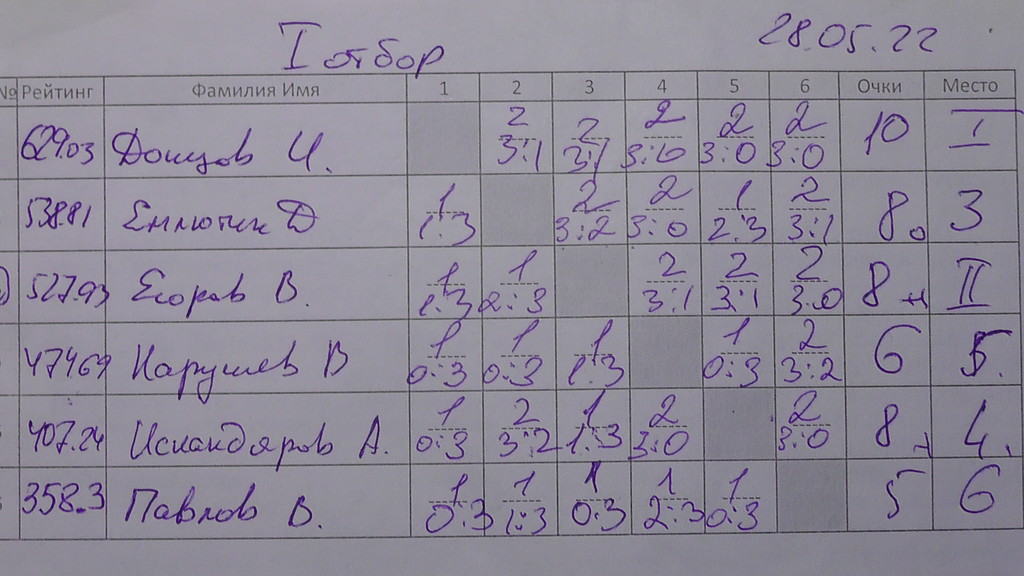 I отбор 28.05.22
№ Рейтинг Фамилия Имя 1 2 3 4 5 6 Очки Место
629.03 Донцов И. 2 3:1 2 3:1 2 3:0 2 3:0 2 3:0 10 I
538.81 Емлютин Д 1 1:3 2 3:2 2 3:0 1 2:3 2 3:1 8 0 3
527.93 Егоров В. 1 1:3 1 2:3 2 3:1 2 3:1 2 3:0 8 +1 II
474.69 Карушев В 1 0:3 1 0:3 1 1:3 1 0:3 2 3:2 6 5.
407.24 Искандяров А. 1 0:3 2 3:2 1 1:3 2 3:0 2 3:0 8 -1 4.
358.3 Павлов В. 1 0:3 1 1:3 1 0:3 1 2:3 1 0:3 5 6